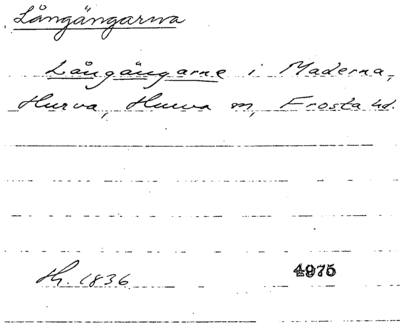 Långängarna
Långängarne i Maderna,
Hurva, Hurva sn, Frosta hd.
Lk. 1836
4975